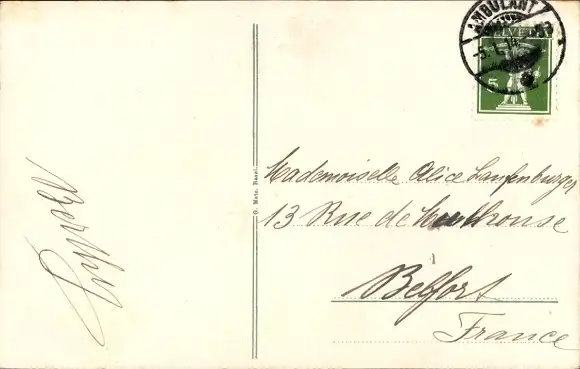 AMBULANT
-5.1.14
HELVETIA
5
G. Metz, Basel.
Mademoiselle Alice Laufenburger
13 Rue de Mulhouse
à
Belfort
France